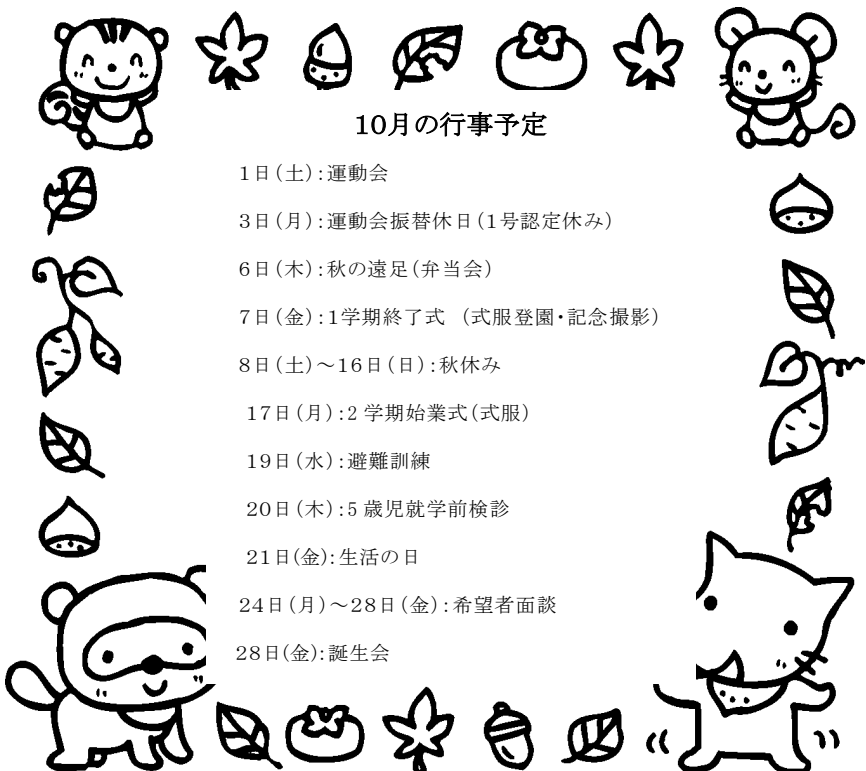 10月の行事予定
1日(土):運動会
3日(月):運動会振替休日(1号認定休み)
6日(木):秋の遠足(弁当会)
7日(金):1学期終了式 (式服登園・記念撮影)
8日(土)~16日(日):秋休み
17日(月):2学期始業式(式服)
19日(水):避難訓練
20日(木):5歳児就学前検診
21日(金):生活の日
24日(月)~28日(金):希望者面談
28日(金):誕生会